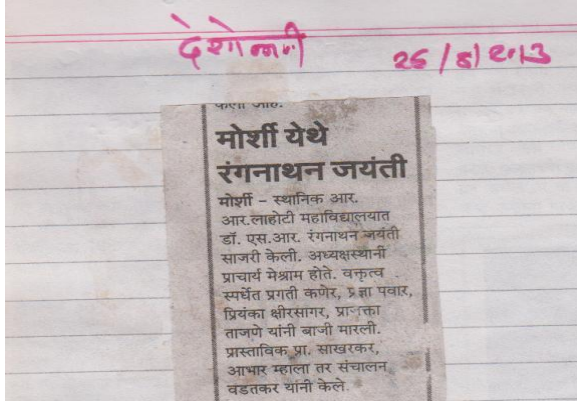 देशोन्नती 26/8/2013
केला आहे.
मोर्शी येथे
रंगनाथन जयंती
मोर्शी – स्थानिक आर.
आर.लाहोटी महाविद्यालयात
डॉ. एस.आर. रंगनाथन जयंती
साजरी केली. अध्यक्षस्थानी
प्राचार्य मेश्राम होते. वक्तृत्व
स्पर्धेत प्रगती कणेर, प्रज्ञा पवार,
प्रियंका क्षीरसागर, प्राजक्ता
ताजणे यांनी बाजी मारली.
प्रास्ताविक प्रा. साखरकर,
आभार म्हाला तर संचालन
वडतकर यांनी केले.